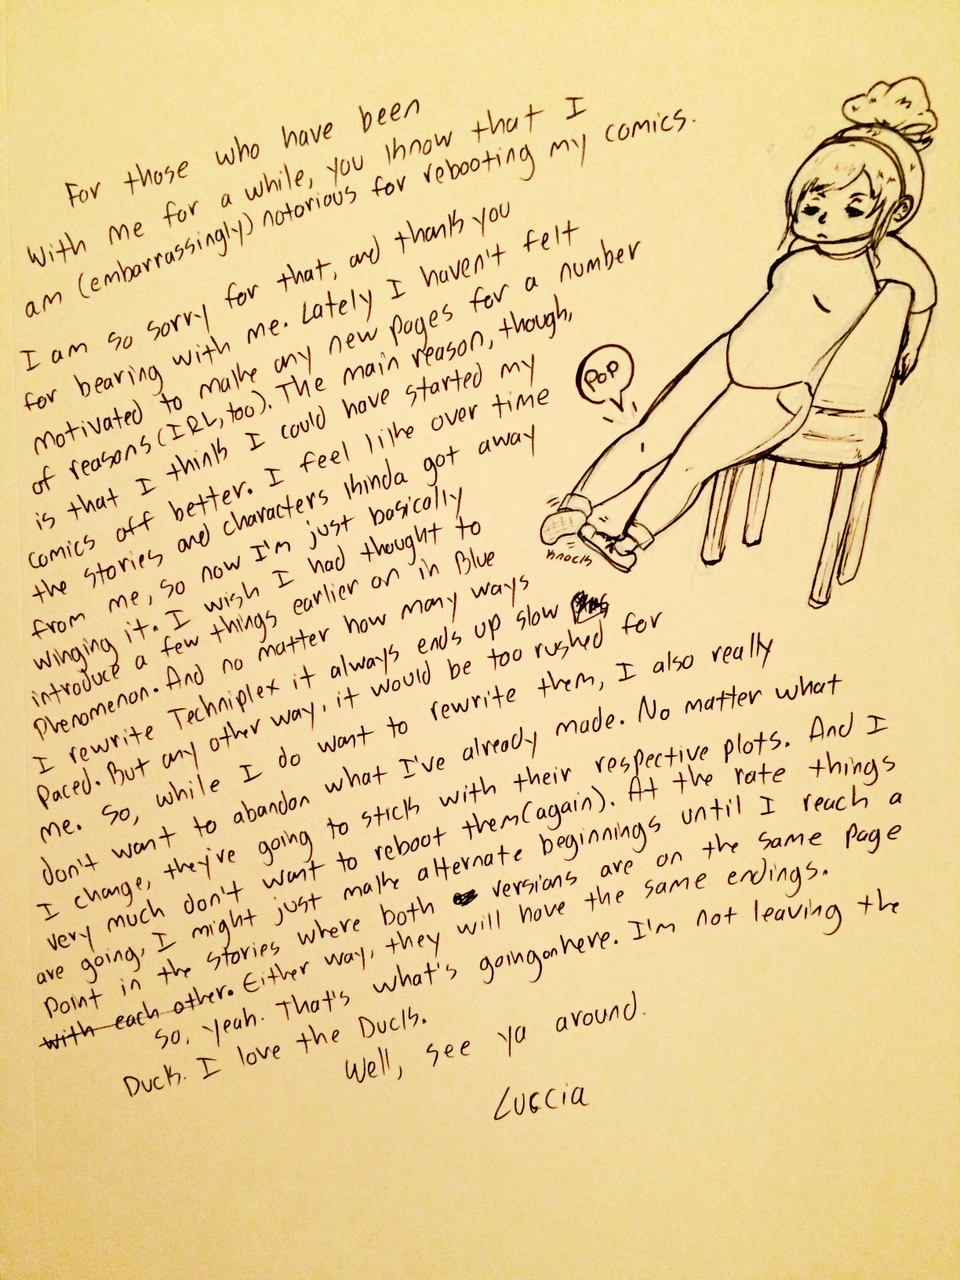 For those who have been
with me for a while, you know that I
am (embarrassingly) notorious for rebooting my comics.
I am so sorry for that, and thank you
for bearing with me. Lately I haven't felt
motivated to make any new pages for a number
of reasons (IRL, too). The main reason, though,
is that I think I could have started my
comics off better. I feel like over time
the stories and characters kinda got away
from me, so now I'm just basically
winging it. I wish I had thought to
introduce a few things earlier on in Blue
Phenomenon. And no matter how many ways
I rewrite Techniplex it always ends up slow
paced. But any other way, it would be too rushed for
me. So, while I do want to rewrite them, I also really
don't want to abandon what I've already made. No matter what
I change, they're going to stick with their respective plots. And I
very much don't want to reboot them (again). At the rate things
are going, I might just make alternate beginnings until I reach a
point in the stories where both versions are on the same page
with each other. Either way, they will have the same endings.
So, yeah. That's what's going on here. I'm not leaving the
Duck. I love the Duck.
Well, see ya around.
Luccia
POP
knock